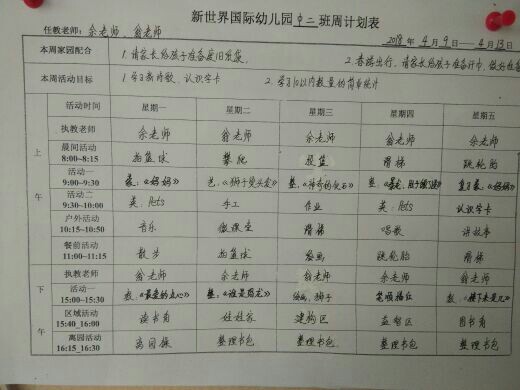 新世界国际幼儿园中二班周计划表
任教老师： 余老师、翁老师
2018年4月9日——4月13日
本周家园配合 1.请家长给孩子准备 2.春游出行，请家长给孩子准备
本周活动目标 1.学习新诗歌、认识字卡 2.学习10以内数量的简单统计
活动时间 星期一 星期二 星期三 星期四 星期五
上午
执教老师 余老师 翁老师 余老师 翁老师 余老师
晨间活动 8:00~8:15 拍篮球 攀爬 投篮 滑梯 跳轮胎
活动一 9:00~9:30 《妈妈》 《狮子烫头发》 整、《神奇的 》 复习 、《妈妈》
活动二 9:30~10:00 英：Pets 手工 作业 英：Pets 认识字卡
户外活动 10:15~10:50 音乐 微课堂 滑梯 唱歌 讲故事
餐前活动 11:00~11:15 散步 拍篮球 绘画 跳轮胎 滑梯
下午
执教老师 翁老师 余老师 翁老师 余老师 翁老师
活动一 15:00~15:30 数、《最爱的点心》 整：《谁是恐龙》 绘画：狮子 数、《接下来是几》
区域活动 15:40_16:00 读书角 娃娃家 建构区 益智区 图书角
离园活动 16:15_16:30 离园操 整理书包 整理书包 整理书包 整理书包